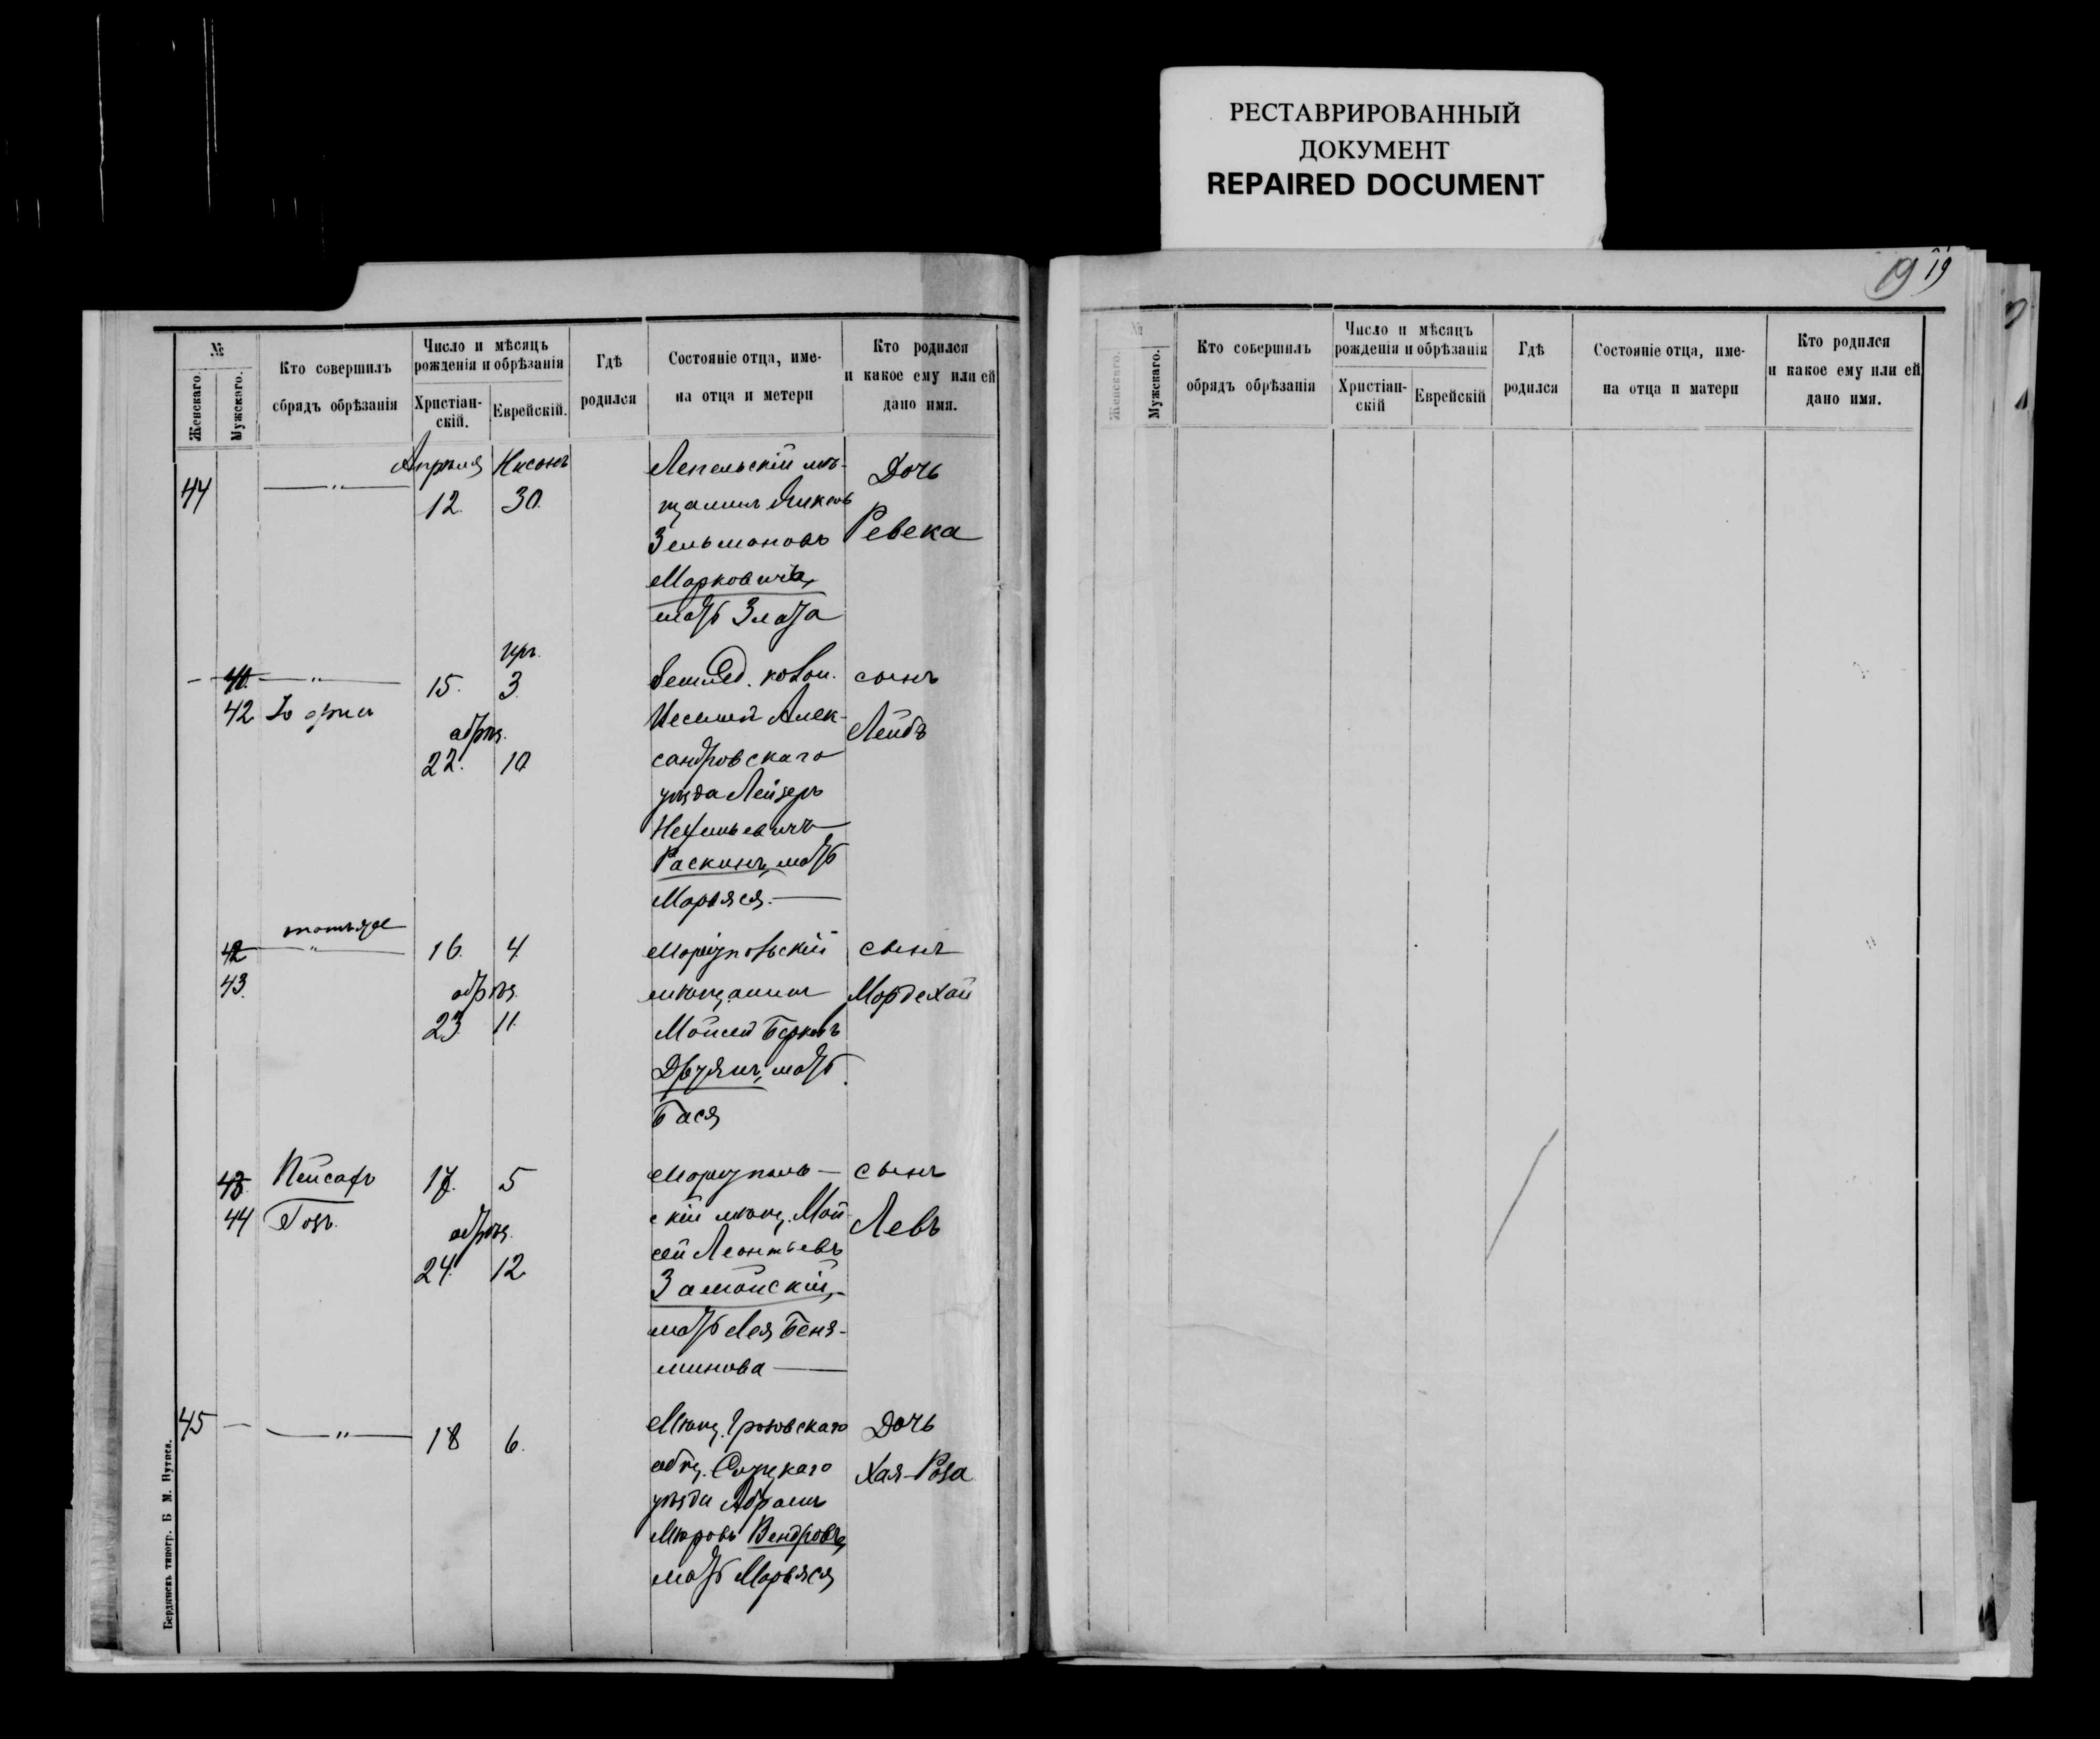 РЕСТАВРИРОВАННЫЙ
ДОКУМЕНТ
REPAIRED DOCUMENT
№
Женскаго.
Мужскаго.
Кто совершилъ
сбрядъ обрѣзанія
Число и мѣсяцъ
рожденія и обрѣзанія
Христіан-
скій.
Еврейскій.
Гдѣ
родился
Состояніе отца, име-
на отца и метери
Кто родился
и какое ему или ей
дано имя.
44
— " —
Апрѣля
12.
Нисонъ
30.
Лепельскій мѣ-
щанинъ
Зельмановъ
Марковичъ,
мать Злата
Дочь
Ревека
41.
42
— " —
15.
обрѣз.
22.
Иръ.
3.
10
землед. колон.
Алек-
сандровскаго
уѣзда Лейзеръ
Раскинъ, мать
Марьяся. —
сынъ
Лейбъ
42
43.
тотъ же
— " —
16.
обрѣз.
23.
4.
11.
Маріупольскій
мѣщанинъ
Моисей Берковъ
мать
Бася
сынъ
Мордехай
43.
44
Пейсахъ
17.
обрѣз.
24.
5
12.
Маріуполь —
скій мѣщ. Мои-
сей Леонтьевъ
Замойскій, -
мать Лея Беня-
минова —
сынъ
Левъ
45 —
— " —
18
6.
Мѣщ. Грозовскаго
общ. Слуцкаго
уѣзда Абрамъ
Мѣровъ Вендровъ,
мать Марьяся
Дочь
Хая-Роза
Бердянскъ типогр. Б. М. Нутиса.
19 19
№
Женскаго.
Мужскаго.
Кто совершилъ
обрядъ обрѣзанія
Число и мѣсяцъ
рожденія и обрѣзанія
Христіан-
скій
Еврейскій
Гдѣ
родился
Состояніе отца, име-
на отца и матери
Кто родился
и какое ему или ей
дано имя.